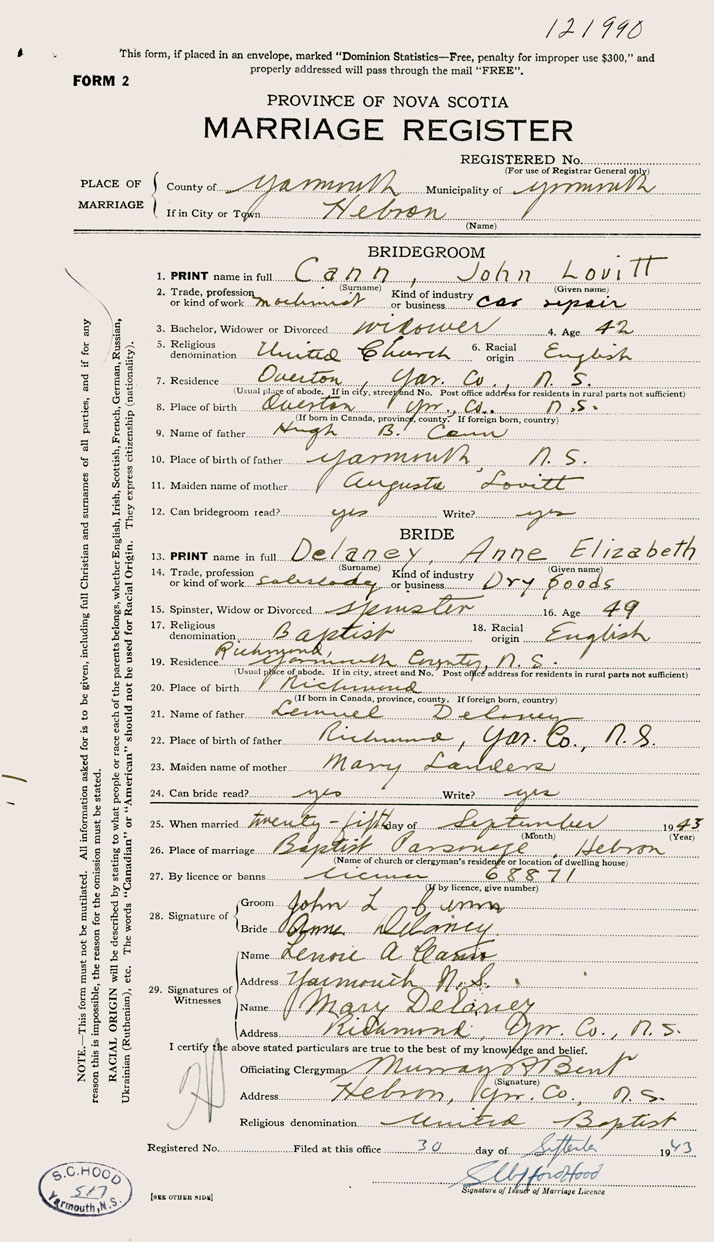 121990
This form, if placed in an envelope, marked "Dominion Statistics—Free, penalty for improper use $300," and
properly addressed will pass through the mail "FREE".
FORM 2
PROVINCE OF NOVA SCOTIA
MARRIAGE REGISTER
REGISTERED No.
(For use of Registrar General only)
PLACE OF MARRIAGE
County of Yarmouth Municipality of Yarmouth
If in City or Town Hebron
(Name)
BRIDEGROOM
1. PRINT name in full Cann, John Lovitt
(Surname) (Given name)
2. Trade, profession or kind of work machinist Kind of industry or business car repair
3. Bachelor, Widower or Divorced widower 4. Age 42
5. Religious denomination United Church 6. Racial origin English
7. Residence Overton, Yar. Co., N.S.
(Usual place of abode. If in city, street and No. Post office address for residents in rural parts not sufficient)
8. Place of birth Overton Yar. Co. N.S.
(If born in Canada, province, county. If foreign born, country)
9. Name of father Hugh B. Cann
10. Place of birth of father Yarmouth, N.S.
11. Maiden name of mother Augusta Lovitt
12. Can bridegroom read? yes Write? yes
BRIDE
13. PRINT name in full Delaney, Anne Elizabeth
(Surname) (Given name)
14. Trade, profession or kind of work saleslady Kind of industry or business Dry goods
15. Spinster, Widow or Divorced spinster 16. Age 49
17. Religious denomination Baptist 18. Racial origin English
Richmond,
19. Residence Yarmouth County, N.S.
(Usual place of abode. If in city, street and No. Post office address for residents in rural parts not sufficient)
20. Place of birth Richmond
(If born in Canada, province, county. If foreign born, country)
21. Name of father Lemuel Delaney
22. Place of birth of father Richmond, Yar. Co., N.S.
23. Maiden name of mother Mary Landers
24. Can bride read? yes Write? yes
25. When married twenty-fifth day of September 1943
(Month) (Year)
26. Place of marriage Baptist Parsonage, Hebron
(Name of church or clergyman's residence or location of dwelling house)
27. By licence or banns license 68871
(If by licence, give number)
28. Signature of
Groom John L Cann
Bride Anne Delaney
29. Signatures of Witnesses
Name Lenore A Cann
Address Yarmouth N.S.
Name Mary Delaney
Address Richmond, Yar. Co., N.S.
I certify the above stated particulars are true to the best of my knowledge and belief.
Officiating Clergyman Murray Bent
(Signature)
Address Hebron, Yar. Co., N.S.
Religious denomination United Baptist
Registered No. Filed at this office 30 day of September 1943
S Clifford Hood
Signature of Issuer of Marriage Licence
[SEE OTHER SIDE]
S.C. HOOD
517
Yarmouth, N.S.
NOTE.—This form must not be mutilated. All information asked for is to be given, including full Christian and surnames of all parties, and if for any
reason this is impossible, the reason for the omission must be stated.
RACIAL ORIGIN will be described by stating to what people or race each of the parents belongs, whether English, Irish, Scottish, French, German, Russian,
Ukrainian (Ruthenian), etc. The words "Canadian" or "American" should not be used for Racial Origin. They express citizenship (nationality).